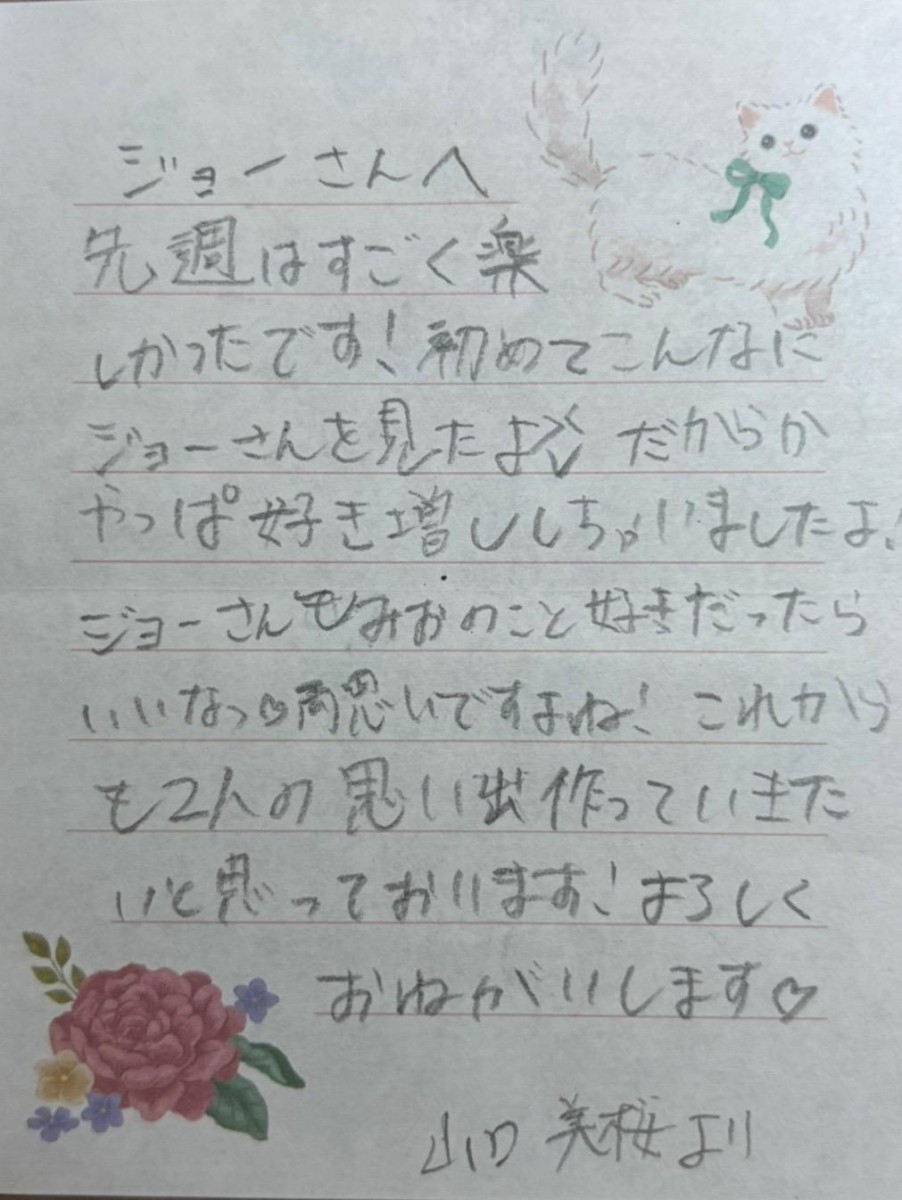 ジョーさんへ
先週はすごく楽
しかったです!初めてこんなに
ジョーさんを見たよ だからか
やっぱ好き増ししちゃいましたよ!
ジョーさんもみおのこと好きだったら
いいなっ♡両思いですよね!これから
も2人の思い出作っていきた
いと思っております!よろしく
おねがいします♡
山口 美桜より